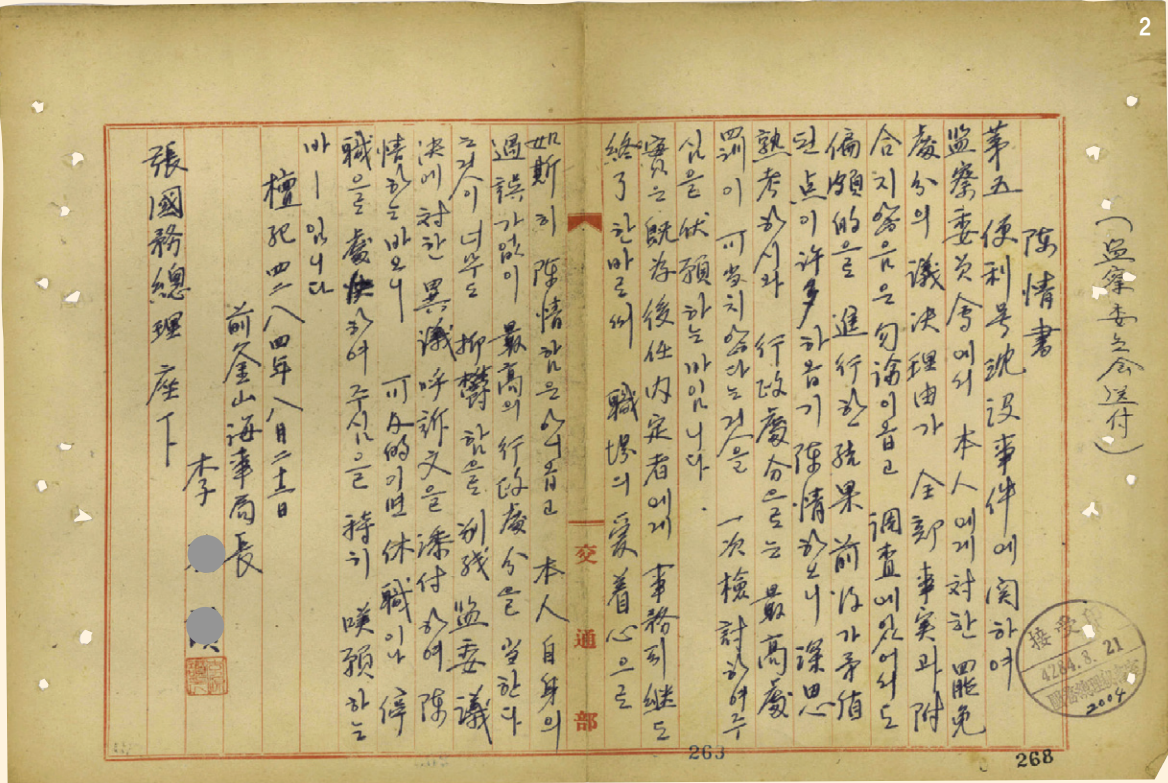 2
(監察委員会送付)
陳情書
第五便利号沈没事件에 関하여
監察委員会에서 本人에게 対한 罷免
處分의 議決理由가 全部 事実과 附
合치 않음은 勿論이옵고 調査에있어서도
偏頗的으로 進行한 結果 前後가 矛盾
된 点이 許多하옵기 陳情하오니 深思
熟考하시와 行政處分으로는 最高處
罰이 可當치 않다는것을 一次 檢討하여주
심을 伏願하는 까입니다.
實은 既存後任内定者에게 事務引継도
終了한바로써 職場의 愛着心으로
如斯히 陳情함은 아니옵고 本人自身의
過誤가없이 最高의 行政處分을 當한다
는것이 너무도 抑欝함으로 別残 監委議
決에 対한 異議呼訴文을 添付하여 陳
情하는바오니 可及的이면 休職이나 停
職으로 處決하여 주심을 特히 嘆願하는
바ー입니다
檀紀四二八四年八月二十二日
前釜山海事局長
李
張國務總理 座下
交通部
接受印
4284.8.21
2004
263
268